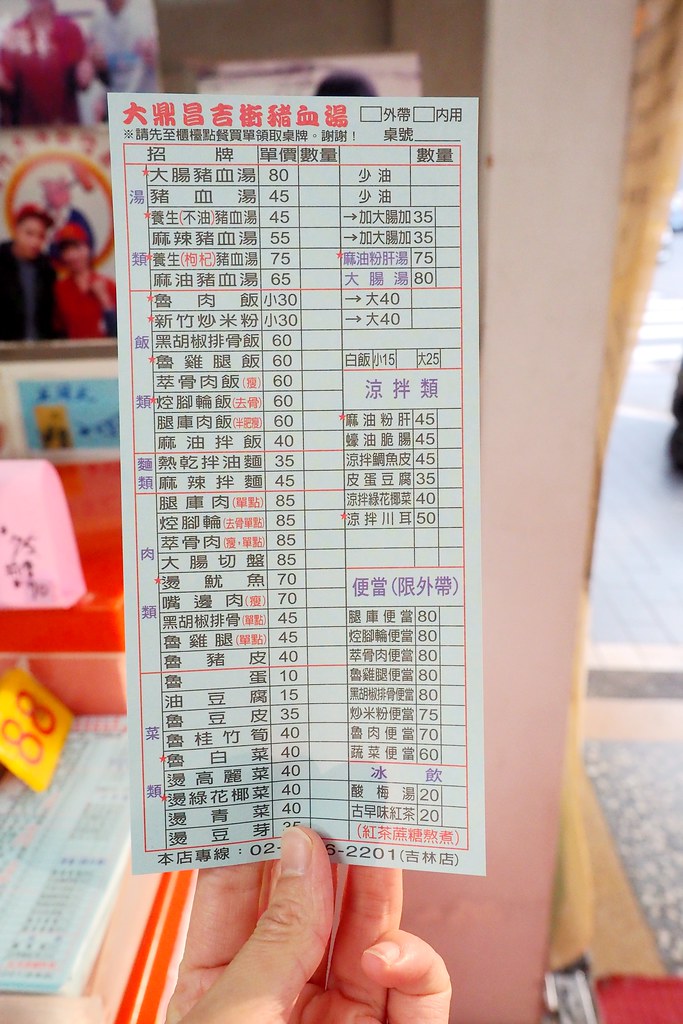 大鼎昌吉街豬血湯 □外帶□内用
※請先至櫃檯點餐買單領取桌牌。謝謝! 桌號
招牌 單價 數量 數量
湯類
*大腸豬血湯 80 少油
豬血湯 45 少油
*養生(不油)豬血湯 45 →加大腸加 35
麻辣豬血湯 55 →加大腸加 35
*養生(枸杞)豬血湯 75 *麻油粉肝湯 75
麻油豬血湯 65 大腸湯 80
飯類
*魯肉飯 小30 →大40
*新竹炒米粉 小30 →大40
黑胡椒排骨飯 60
*魯雞腿飯 60 白飯 小15 大25
萃骨肉飯(瘦) 60
*焢腳輪飯(去骨) 60
腿庫肉飯(半肥瘦) 60
麻油拌飯 40
麵類
熱乾拌油麵 35
麻辣拌麵 45
肉類
腿庫肉(單點) 85
焢腳輪(去骨單點) 85
萃骨肉(瘦,單點) 85
大腸切盤 85
*燙魷魚 70
嘴邊肉(瘦) 70
黑胡椒排骨(單點) 45
魯雞腿(單點) 45
魯豬皮 40
菜類
魯蛋 10
油豆腐 15
魯豆皮 35
魯桂竹筍 40
*魯白菜 40
燙高麗菜 40
*燙綠花椰菜 40
燙青菜 40
燙豆芽 35
涼拌類
*麻油粉肝 45
蠔油脆腸 45
涼拌鯛魚皮 45
皮蛋豆腐 35
涼拌綠花椰菜 40
*涼拌川耳 50
便當(限外帶)
腿庫便當 80
焢腳輪便當 80
萃骨肉便當 80
魯雞腿便當 80
黑胡椒排骨便當 80
炒米粉便當 75
魯肉便當 70
蔬菜便當 60
冰飲
酸梅湯 20
古早味紅茶 20
(紅茶蔗糖熬煮)
本店專線:02- 6-2201(吉林店)
88